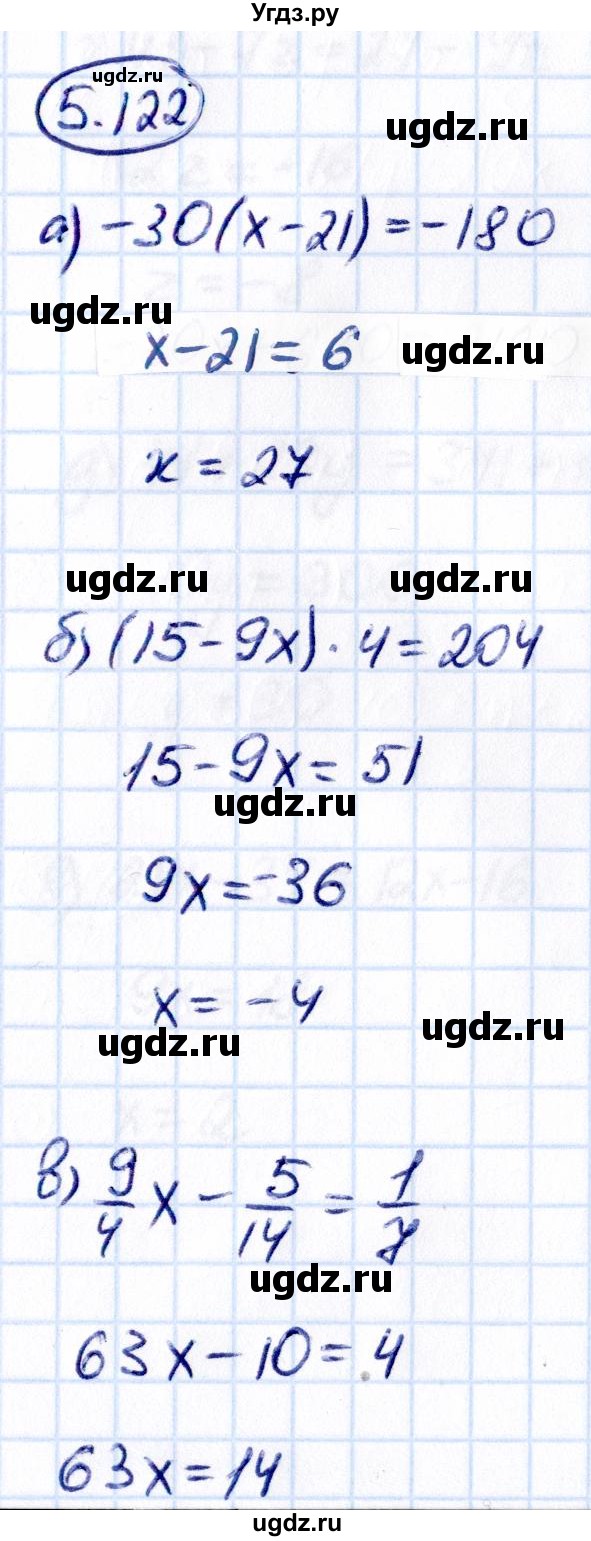 Угдз.ру
ugdz.ru
5.122
ugdz.ru
а) -30(x-21)=-180
ugdz.ru
x-21=6
ugdz.ru
x=27
ugdz.ru ugdz.ru
б) (15-9x)·4=204
15-9x=51
ugdz.ru
9x=-36
x=-4
ugdz.ru
ugdz.ru
в) 9/4 x - 5/14 = 1/7
ugdz.ru
63x-10=4
63x=14
ugdz.ru